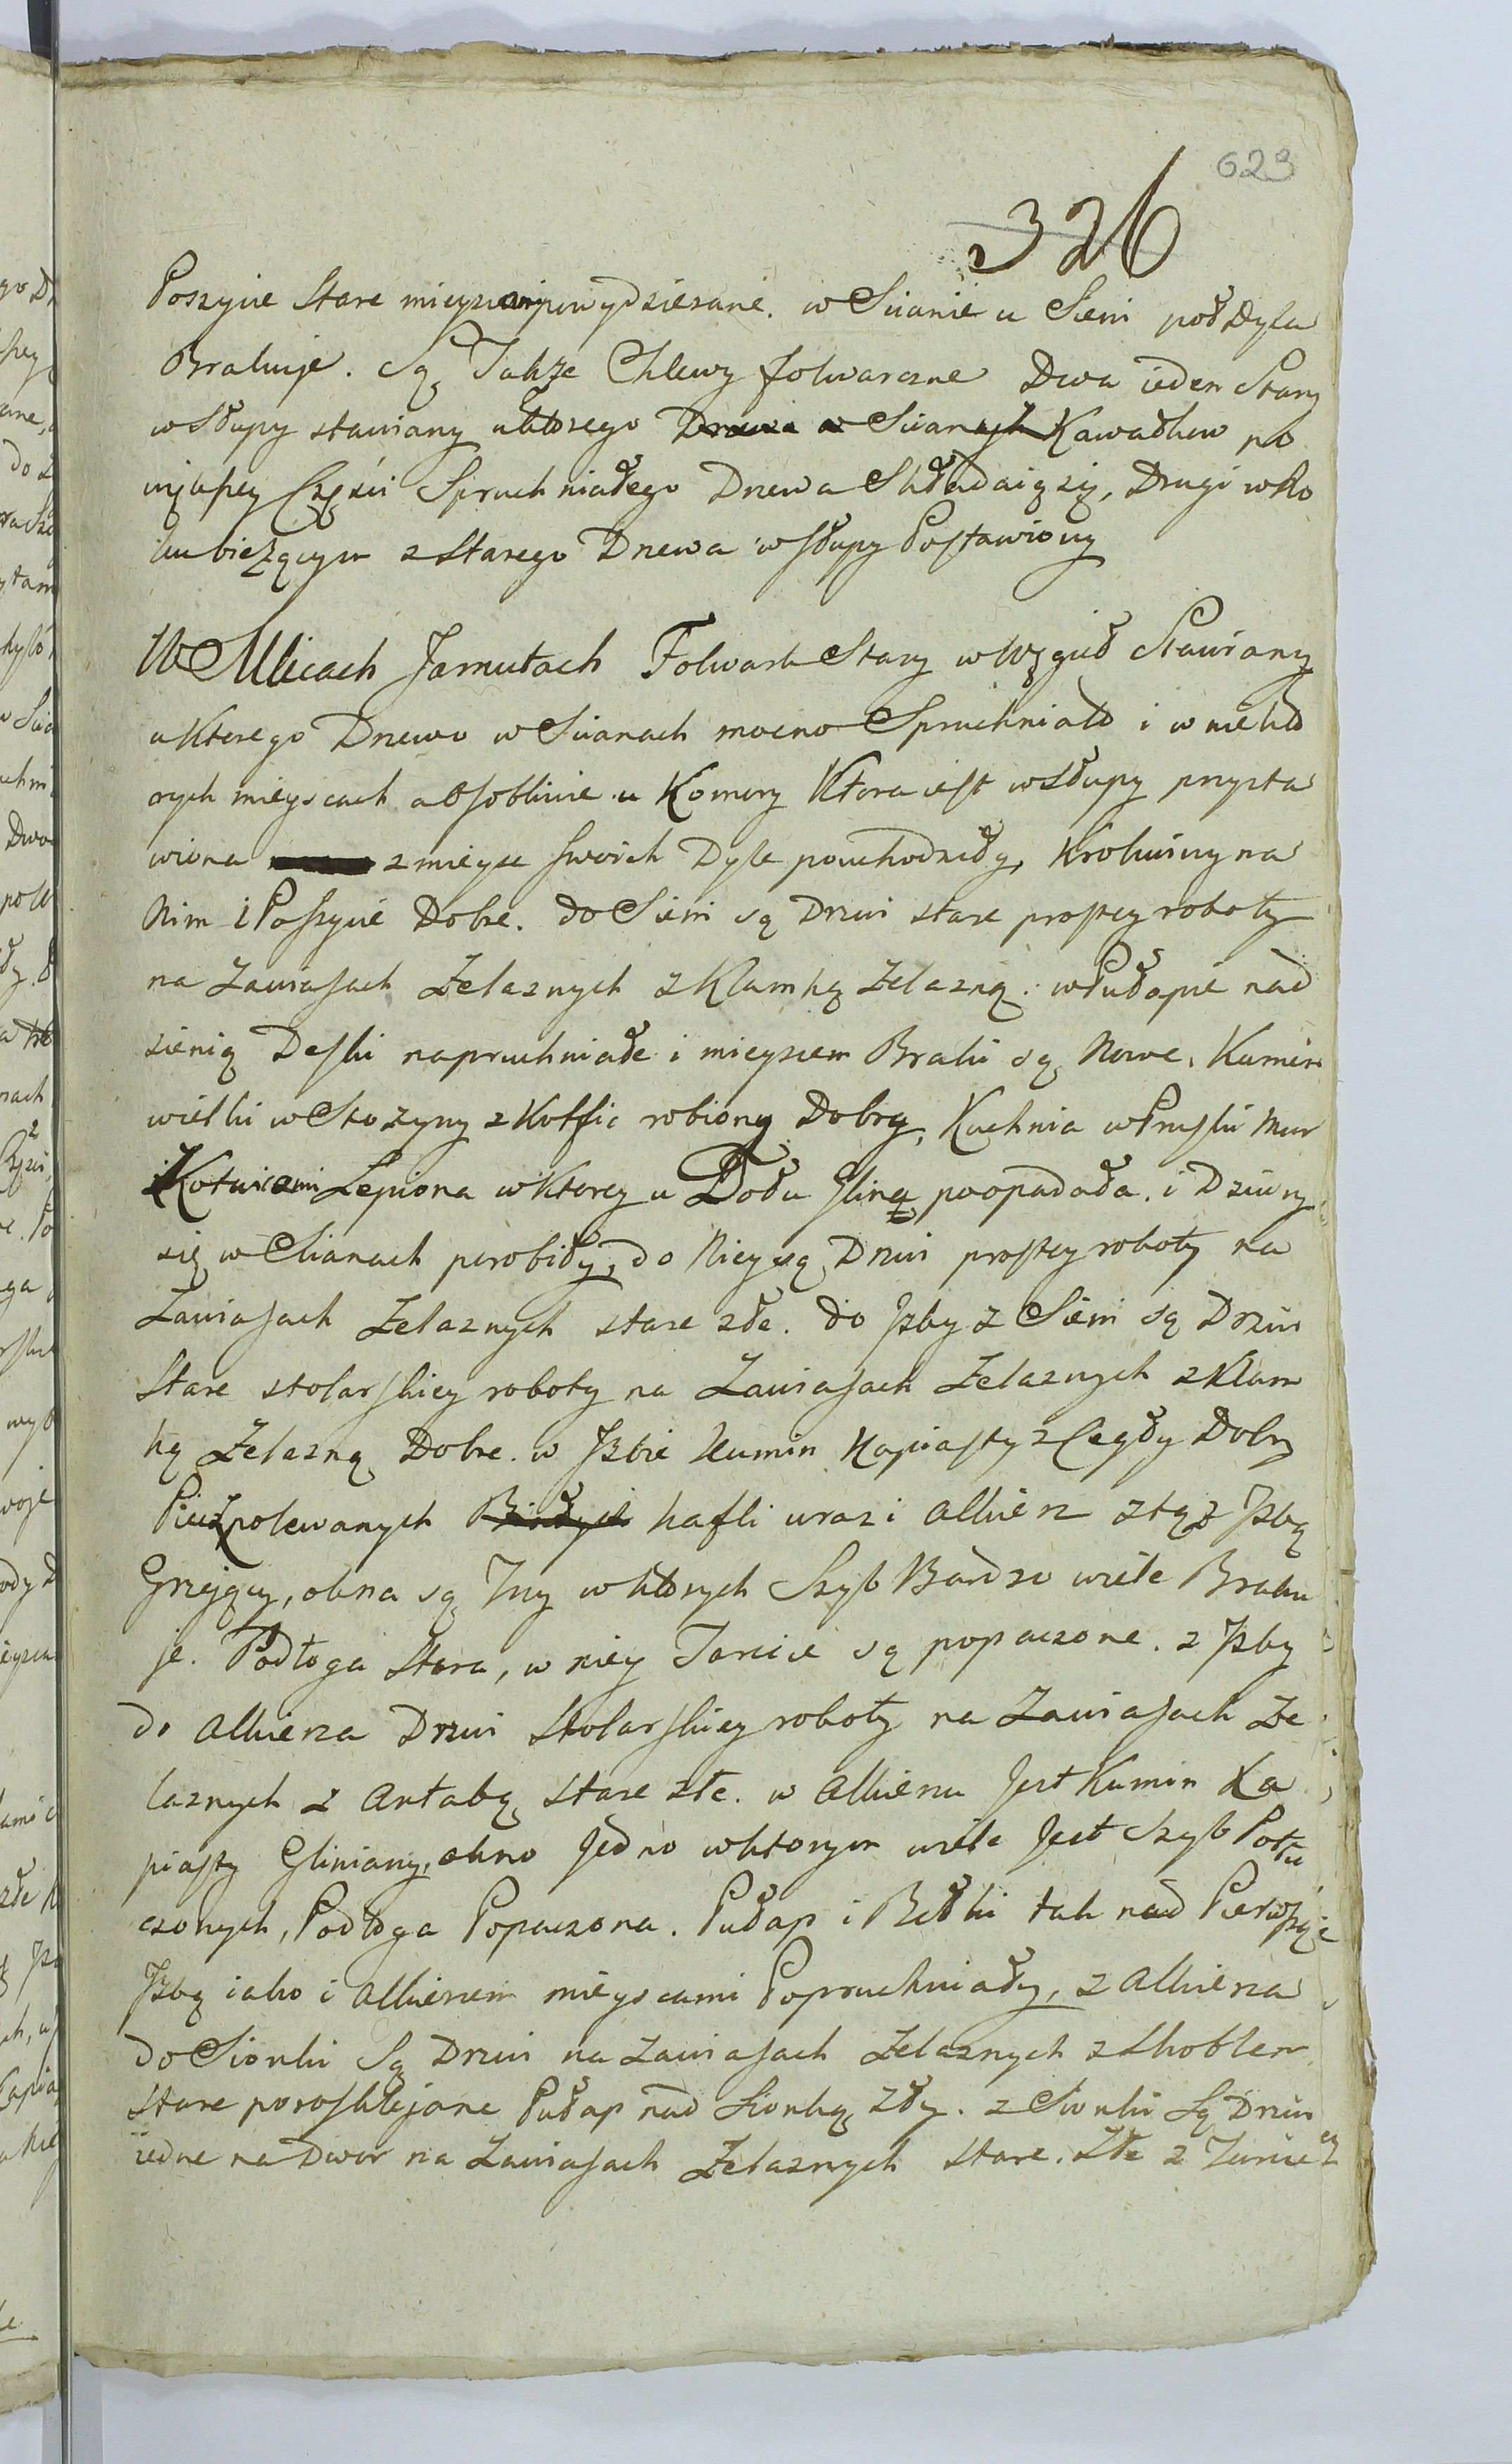 623
326
Poszycie Stare mieyscami powydzierane. w Scianie u Sieni poł Dyla
Brakuje. Są Także Chlewy folwarczne Dwa ieden Stary
w Słupy stawiany u ktorego Drewa w Scianach Kawałkow po
więkſzey Części Spruchniałego Drzewa Składaią się, Drugi w Ro
ku bieżącym z Starego Drzewa w ſłupy Poſtawiony
W Ulicach Jamułach Folwark Stary w Węgieł Stawiany
u Ktorego Drzewo w Scianach mocno Spruchniało i w niektó
rych mieyscach a oſobliwie u Komory Ktora ieſt w Słupy przysta
wiona z mieysc ſwoich Dyle powychodziły, Krokwiny na
Nim i Poſzycie Dobre. do Sieni są Drzwi stare proſtey roboty
na Zawiaſach Żelaznych z Klamką Żelazną. w Pułapie nad
sienią Deſki napruchniałe i mieyscem Braki są Nowe. Kumin
wielki w Stożyny z Kottic robiony Dobry, Kuchnia w Pruſki Mur
i Kotwicami Lepiona w Ktorey u Dołu Gliną poopadała. i Dziury
się w Scianach porobiły, do Niey są Drzwi proſtey roboty na
Zawiaſach Żelaznych stare złe. do Jzby z Sieni są Drzwi
Stare stolarſkiey roboty na Zawiaſach Żelaznych z Klam
ką Żelazną Dobre. w Jzbie Kumin Kapiaſty z Cegły Dobry
Piec z polewanych Białych kafli wraz i alkierz z tąż Jzbą
Grzejący, okna są Trzy w których Szyb Bardzo wiele Braku
je. Podłoga Stara, w niey Tarcice są popaczone. z Jzby
do alkierza Drzwi Stolarſkiey roboty na Zawiaſach Że
laznych z Antabą Stare złe. w Alkierzu Jest Kumin Ka
piaſty Gliniany, okno Jedno w ktorym wiele Jest Szyb Potłu
czonych, Podłoga Popaczona. Pułap i Belki tak nad Pierwſzą
Jzbą iako i alkierzem mieyscami Popruchniały, z alkierza
do Sionki Są Drzwi na Zawiaſach Żelaznych z Skoblem
Stare poroſklejane Pułap nad Sionką Zły. z Sionki Są Drzwi
iedne na Dwor na Zawiaſach Żelaznych Stare. Złe z